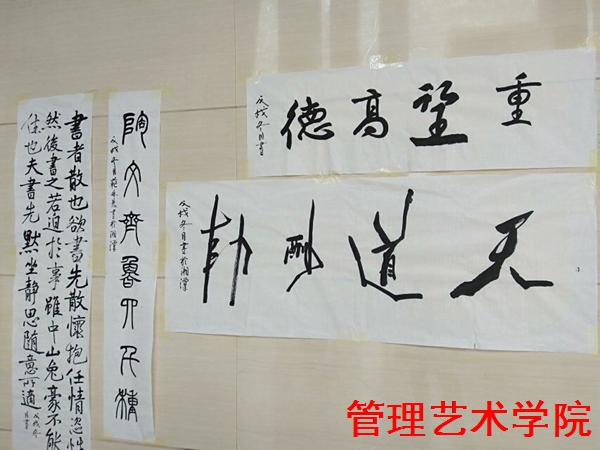 重望高德
戊戌冬月書
天道酬勤
戊戌冬月書於湘潭
陶文齊魯
戊戌冬月 書於湘潭
書者散也欲書先散懷抱任情恣性
然後書之若迫於事雖中山兔豪不能
佳也夫書先默坐靜思隨意所適
戊戌冬月書
管理艺术学院